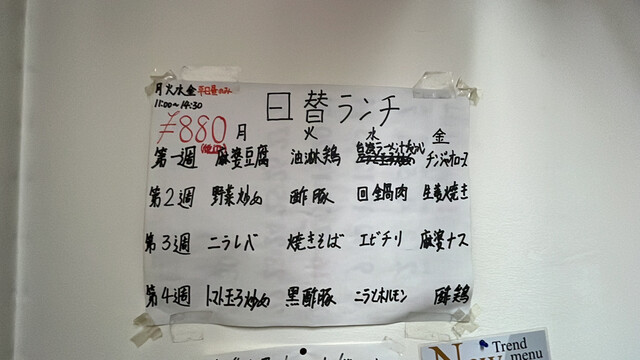 月火水金 平日昼のみ
11:00~14:30
日替ランチ
¥880
(税込)
月 火 水 金
第一週 麻婆豆腐 油淋鶏 チンジャオロース
第2週 野菜炒め 酢豚 回全鍋肉 生姜焼き
第3週 ニラレバ 焼きそば エビチリ 麻婆ナス
第4週 トマト玉子炒め 黒酢豚 ニラとホルモン 酥鶏
Trend
New menu